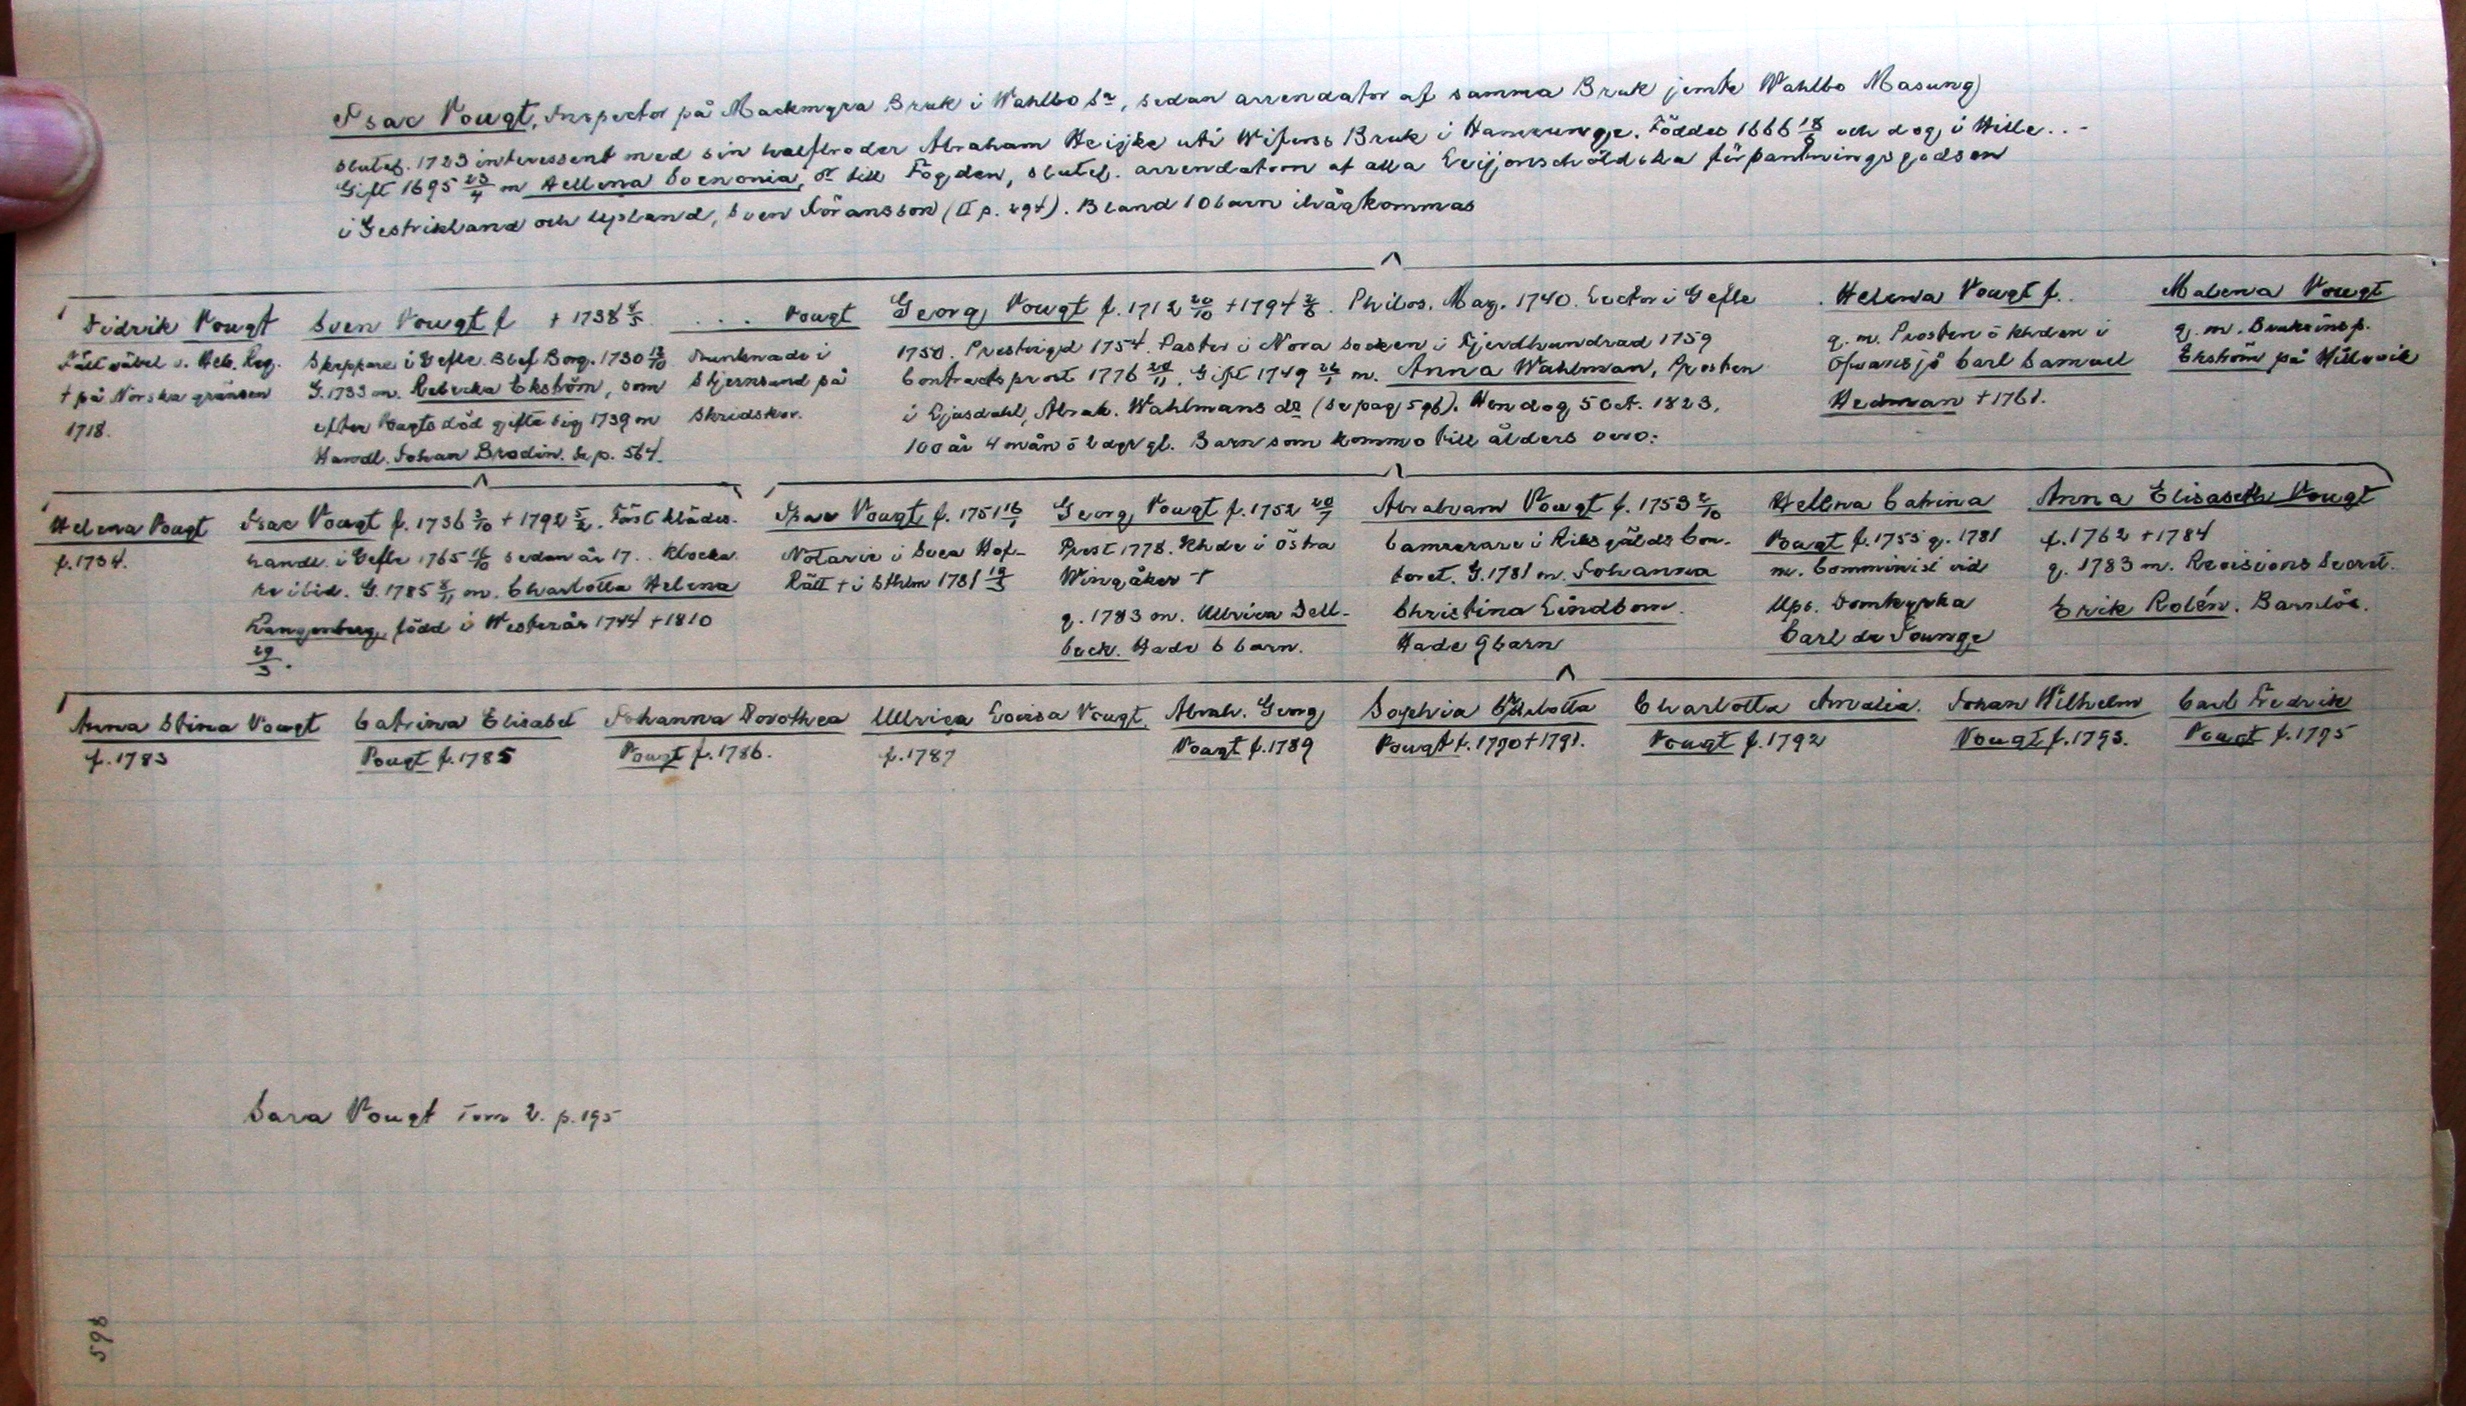 Isac Vougt, Inspector på Mackmyra Bruk i Wahlbo sn, sedan arrendator af samma Bruk jemte Wahlbo Masung
slutel. 1723 interessent med sin halfbroder Abraham Heijke uti Wifors Bruk i Hamrunge. Föddes 1666 18/6 och dog i Hille...
Gift 1695 23/4 m Hellena Svenonia, dr till Fogden, slutel. arrendatorn af alla Leijonschöldska förpantningsgodsen
i Gestrikland och Upland, Sven Göransson (II p. 294). Bland 10 barn ihågkommas
Fidrik Vougt
Fältväbel v. Hels. Reg.
† på Norska gränsen
1718.
Sven Vougt f † 1738 4/5
Skeppare i Gefle. Blef Borg. 1730 12/10
G. 1733 m. Rebecka Ekström, som
efter Vougts död gifte sig 1739 m
Handl. Johan Brodin. Se p. 564.
. . . Vougt
Drunknade i
Stjernsund på
skridskor.
Georg Vougt f. 1712 20/10 † 1794 2/8. Philos. Mag. 1740. Lector i Gefle
1750. Prestvigd 1754. Pastor i Nora Socken i Fjerdhundrad 1759
Contractsprost 1776 28/11. Gift 1749 26/1 m. Anna Wahlman, Prosten
i Ljusdahl, Abrah. Wahlmans dr (se pag 596). Hon dog 5 Oct. 1823,
100 år 4 mån ö 2 dgr gl. Barn som kommo till ålders voro:
Helena Vougt f.
g. m. Prosten ö Khden i
Ofvansjö Carl Samuel
Hedman † 1761.
Malena Vougt
g. m. Bruksinsp.
Ekström på Hillevik
Helena Vougt
f. 1734.
Isac Vougt f. 1736 3/10 † 1792 5/2. Först klädes-
handl. i Gefle 1765 16/10 sedan år 17.. Klocka
re ibid. G. 1785 8/11 m. Charlotta Helena
Rangenberg, född i Westerås 1744 † 1810
29/3.
Isac Vougt f. 1751 16/1
Notarie i Svea Hof-
Rätt † i Sthlm 1781 19/3
Georg Vougt f. 1752 20/7
Prest 1778. Khde i Östra
Wingåker †
g. 1783 m. Ullrica Dell-
beck. Hade 6 barn.
Abraham Vougt f. 1753 2/10
Camererare i Riksgälds Con-
toret. G. 1781 m. Johanna
Christina Lindbom.
Hade 9 barn
Hellena Catrina
Vougt f. 1755 g. 1781
m. Comminist vid
Ups. Domkyrka
Carl de Jounge
Anna Elisabeth Vougt
f. 1762 † 1784
g. 1783 m. Revisions Secret.
Erik Rolén. Barnlös.
Anna Stina Vougt
f. 1783
Catrina Elisabet
Vougt f. 1785
Johanna Dorothea
Vougt f. 1786.
Ullrica Lovisa Vougt
f. 1787
Abrah. Georg
Vougt f. 1789
Sophia Charlotta
Vougt f. 1790 † 1791.
Charlotta Amalia.
Vougt f. 1792
Johan Wilhelm
Vougt f. 1793.
Carl Fredrik
Vougt f. 1795
Sara Vougt Tom 2. p. 195
598